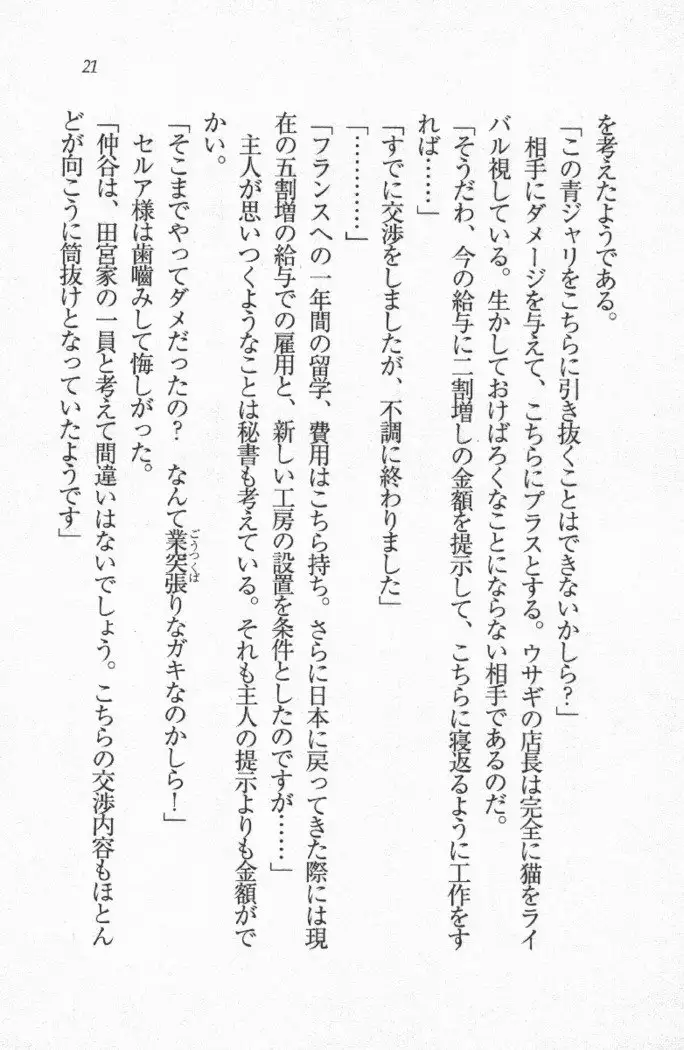 を考えたようである。
「この青ジャリをこちらに引き抜くことはできないかしら？」
相手にダメージを与えて、こちらにプラスとする。ウサギの店長は完全に猫をライ
バル視している。生かしておけばろくなことにならない相手であるのだ。
「そうだわ、今の給与に二割増しの金額を提示して、こちらに寝返るように工作をす
れば……」
「すでに交渉をしましたが、不調に終わりました」
「…………」
「フランスへの一年間の留学、費用はこちら持ち。さらに日本に戻ってきた際には現
在の五割増の給与での雇用と、新しい工房の設置を条件としたのですが……」
主人が思いつくようなことは秘書も考えている。それも主人の提示よりも金額がで
かい。
「そこまでやってダメだったの？　なんて業突張りなガキなのかしら！」
ごうつくば
セルア様は歯噛みして悔しがった。
「仲谷は、田宮家の一員と考えて間違いはないでしょう。こちらの交渉内容もほとん
どが向こうに筒抜けとなっていたようです」
21